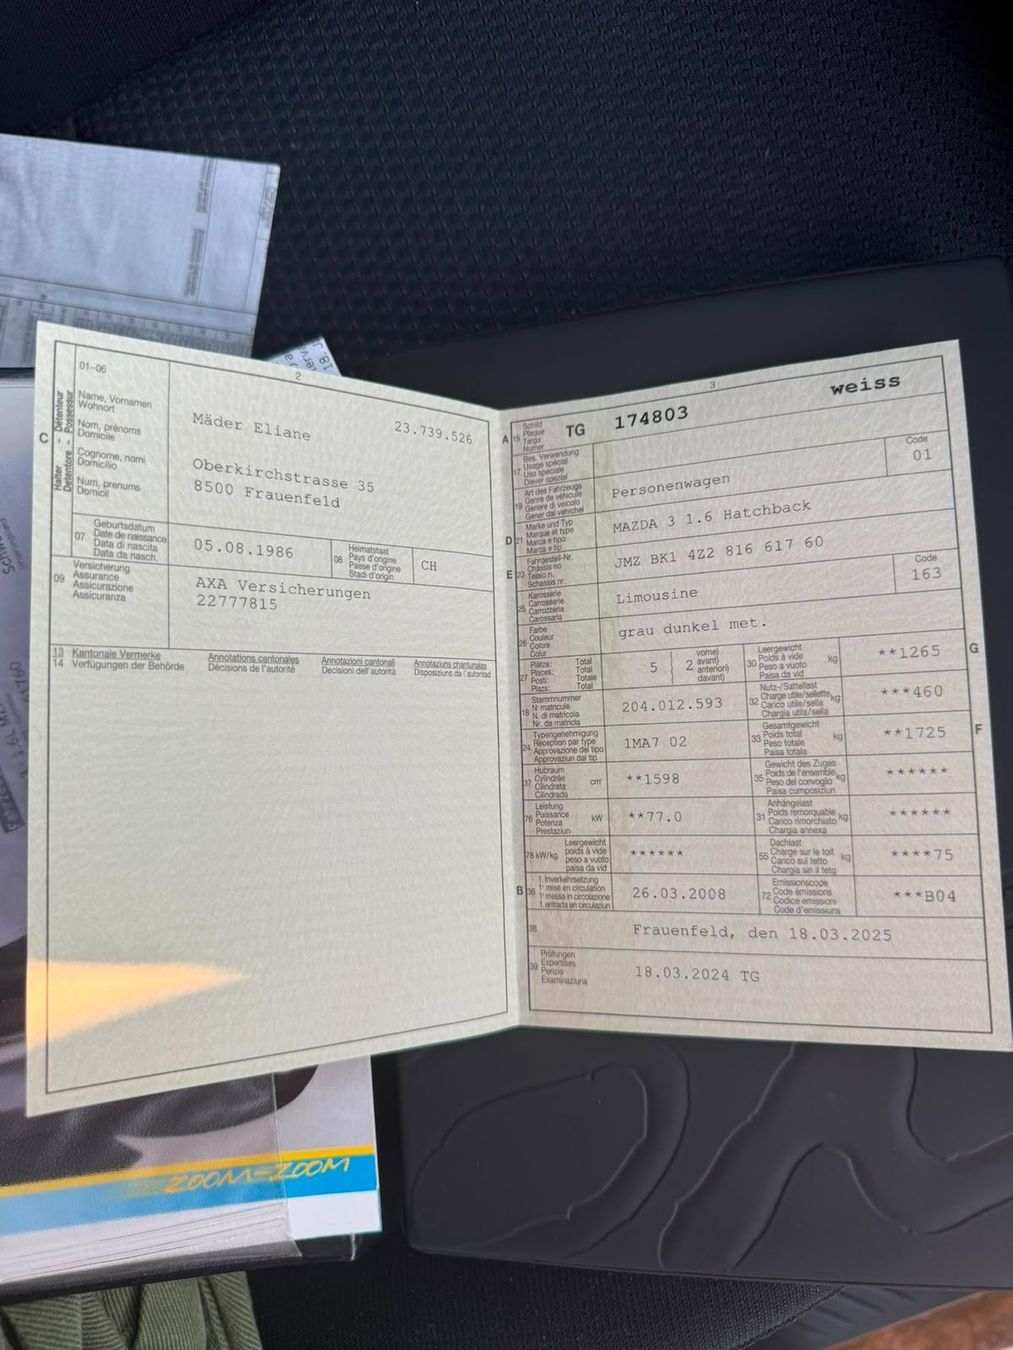 2
01-06
C
Halter – Détenteur
Detentore – Possessur
Name, Vornamen
Wohnort
Nom, prénoms
Domicile
Cognome, nomi
Domicilio
Num, prenums
Domicil
Mäder Eliane 23.739.526
Oberkirchstrasse 35
8500 Frauenfeld
07 Geburtsdatum
Date de naissance
Data di nascita
Data da nasch.
05.08.1986
08 Heimatstaat
Pays d'origine
Paese d'origine
Stadi d'origin
CH
09 Versicherung
Assurance
Assicurazione
Assicuranza
AXA Versicherungen
22777815
13 Kantonale Vermerke Annotations cantonales Annotazioni cantonali Annotaziuns chantunalas
14 Verfügungen der Behörde Décisions de l'autorité Decisioni dell'autorità Disposiziuns da l'autoritad
3
A 15 Schild
Plaque
Targa
Numer
TG 174803 weiss
17 Bes. Verwendung
Usage spécial
Uso speciale
Diever spezial
Code
01
19 Art des Fahrzeugs
Genre de véhicule
Genere di veicolo
Gener dal vehichel
Personenwagen
D 21 Marke und Typ
Marque et type
Marca e tipo
Marca e tip
MAZDA 3 1.6 Hatchback
E 23 Fahrgestell-Nr.
Châssis no
Telaio n.
Schassis nr.
JMZ BK1 4Z2 816 617 60
25 Karosserie
Carrosserie
Carrozzeria
Carossaria
Limousine
Code
163
26 Farbe
Couleur
Colore
Colur
grau dunkel met.
27 Plätze: Total
Places: Total
Posti: Totale
Plazs: Total
5 2 vorne)
avant)
anteriori)
davant)
30 Leergewicht
Poids à vide
Peso a vuoto
Paisa da vid
kg **1265 G
18 Stammnummer
N° matricule
N. di matricola
Nr. da matricla
204.012.593
32 Nutz-/Sattellast
Charge utile/sellette
Carico utile/sella
Chargia utila/sella
kg ***460
24 Typengenehmigung
Réception par type
Approvazione del tipo
Approvaziun dal tip
1MA7 02
33 Gesamtgewicht
Poids total
Peso totale
Paisa totala
kg **1725 F
37 Hubraum
Cylindrée
Cilindrata
Cilindrada
cm³ **1598
35 Gewicht des Zuges
Poids de l'ensemble
Peso del convoglio
Paisa composiziun
kg ******
76 Leistung
Puissance
Potenza
Prestaziun
kW **77.0
31 Anhängelast
Poids remorquable
Carico rimorchiato
Chargia annexa
kg ******
78 kW/kg Leergewicht
poids à vide
peso a vuoto
paisa da vid
******
55 Dachlast
Charge sur le toit
Carico sul tetto
Chargia sin il tetg
kg ****75
B 36 1. Inverkehrsetzung
1re mise en circulation
1a messa in circolazione
1. entrada en circulaziun
26.03.2008
72 Emissionscode
Code émissions
Codice emissioni
Code d'emissiuns
***B04
38 Frauenfeld, den 18.03.2025
39 Prüfungen
Expertises
Perizie
Examinaziuns
18.03.2024 TG
ZOOM-ZOOM